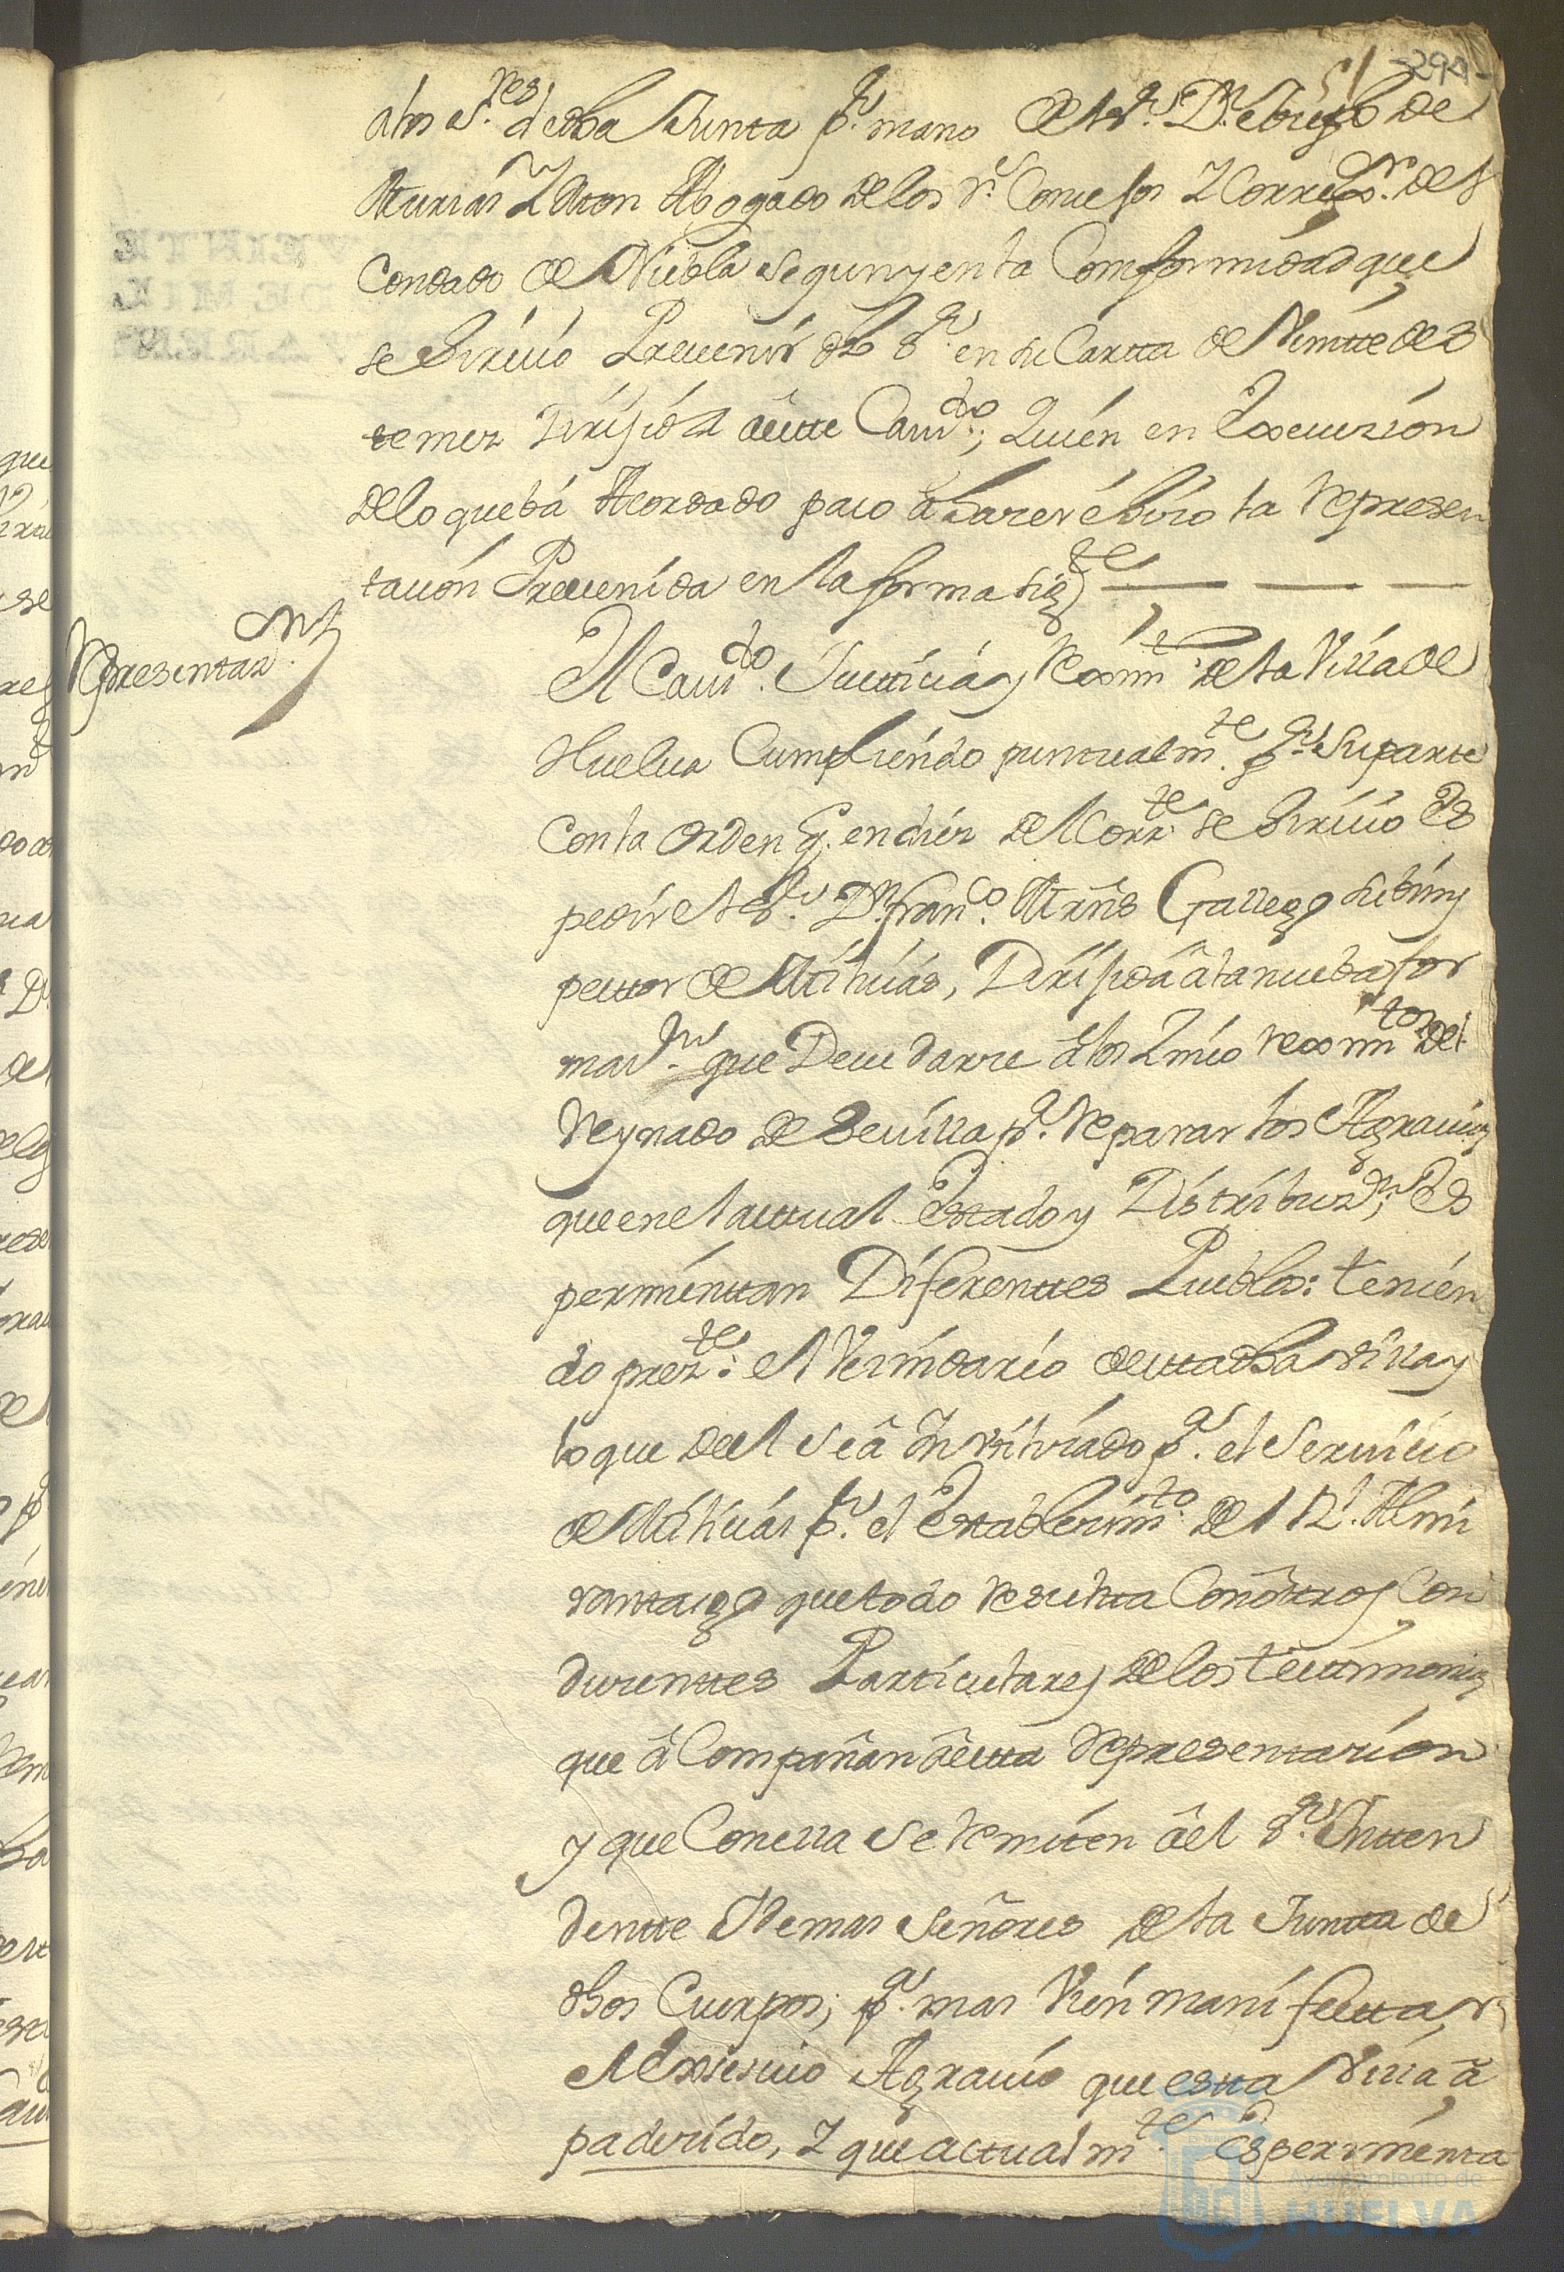 51 -294-
a los S.res de dha Junta p.r mano del S.r D.n de
Asturias y Mon Abogado de los R.s Consejos y Correg.or del
Condado de Niebla segun y en la Comformidad que
se Sirvió Prevenir dho S.r en su Cartta de Veintte de
este mes Dirijida a estte Cavi.do; Quién en Execuzión
de lo que ba Acordado paso a hazer é hizo la Represen
tazión Prevenida en la forma sig.te
Representaz.on
El Cavi.do Justicia y Reximi.to de la Villa de
Huelva Cumpliendo puntualm.te p.r su parte
con la orden q. en diez del Corr.te se Sirvió Es
pedir el S.r D.n Fran.co Mrñs Gallego subíns
pecttor de Milizias, Dirijida â la nueba for
maz.n que Deve darse â los 2 mio reximi.tos del
Reynado de Sevilla p.a Reparar los Agravios
que en el acttual Estado y Distribuz.n, Es
perimenttan Diferenttes Pueblos: tenien
do prez.te el Vezindario de estta dha villa y
lo que de el se â p.a el Servicio
de Milizias p.r el Establezim.to del R.l Almi
rantazgo que todo Resultta Con ôttros Con
duzenttes Particulares de los testtimonios
que â Compañan â estta Representazion
y que Con ella se Remiten â el S.r Intten
dentte y demas Señores de la Juntta de
dhos Cuerpos; p.a mas bien manifesttar
el Exsesivo Agravio que estta Villa â
padezido, y que actualm.te Esperimenta
Ayuntamiento de
HUELVA